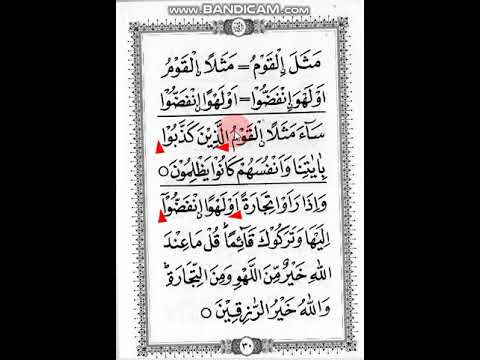 www.BANDICAM.com
مَثَلَ اِلْقَوْمُ = مَثَلًا ۨالْقَوْمُ
اَوْلَهْوَ اِنْفَضُّوْا = اَوْلَهْوًا ۨانْفَضُّوْا
سَآءَ مَثَلًا ۨالْقَوْمُ الَّذِيْنَ كَذَّبُوْا
بِاٰيٰتِنَا وَاَنْفُسَهُمْ كَانُوْا يَظْلِمُوْنَ ○
وَاِذَا رَاَوْا تِجَارَةً اَوْلَهْوًا ۨانْفَضُّوْا
اِلَيْهَا وَتَرَكُوْكَ قَآئِمًا ؕ قُلْ مَا عِنْدَ
اللّٰهِ خَيْرٌ مِّنَ اللَّهْوِ وَمِنَ التِّجَارَةِ ؕ
وَاللّٰهُ خَيْرُ الرّٰزِقِيْنَ ○
٣٠